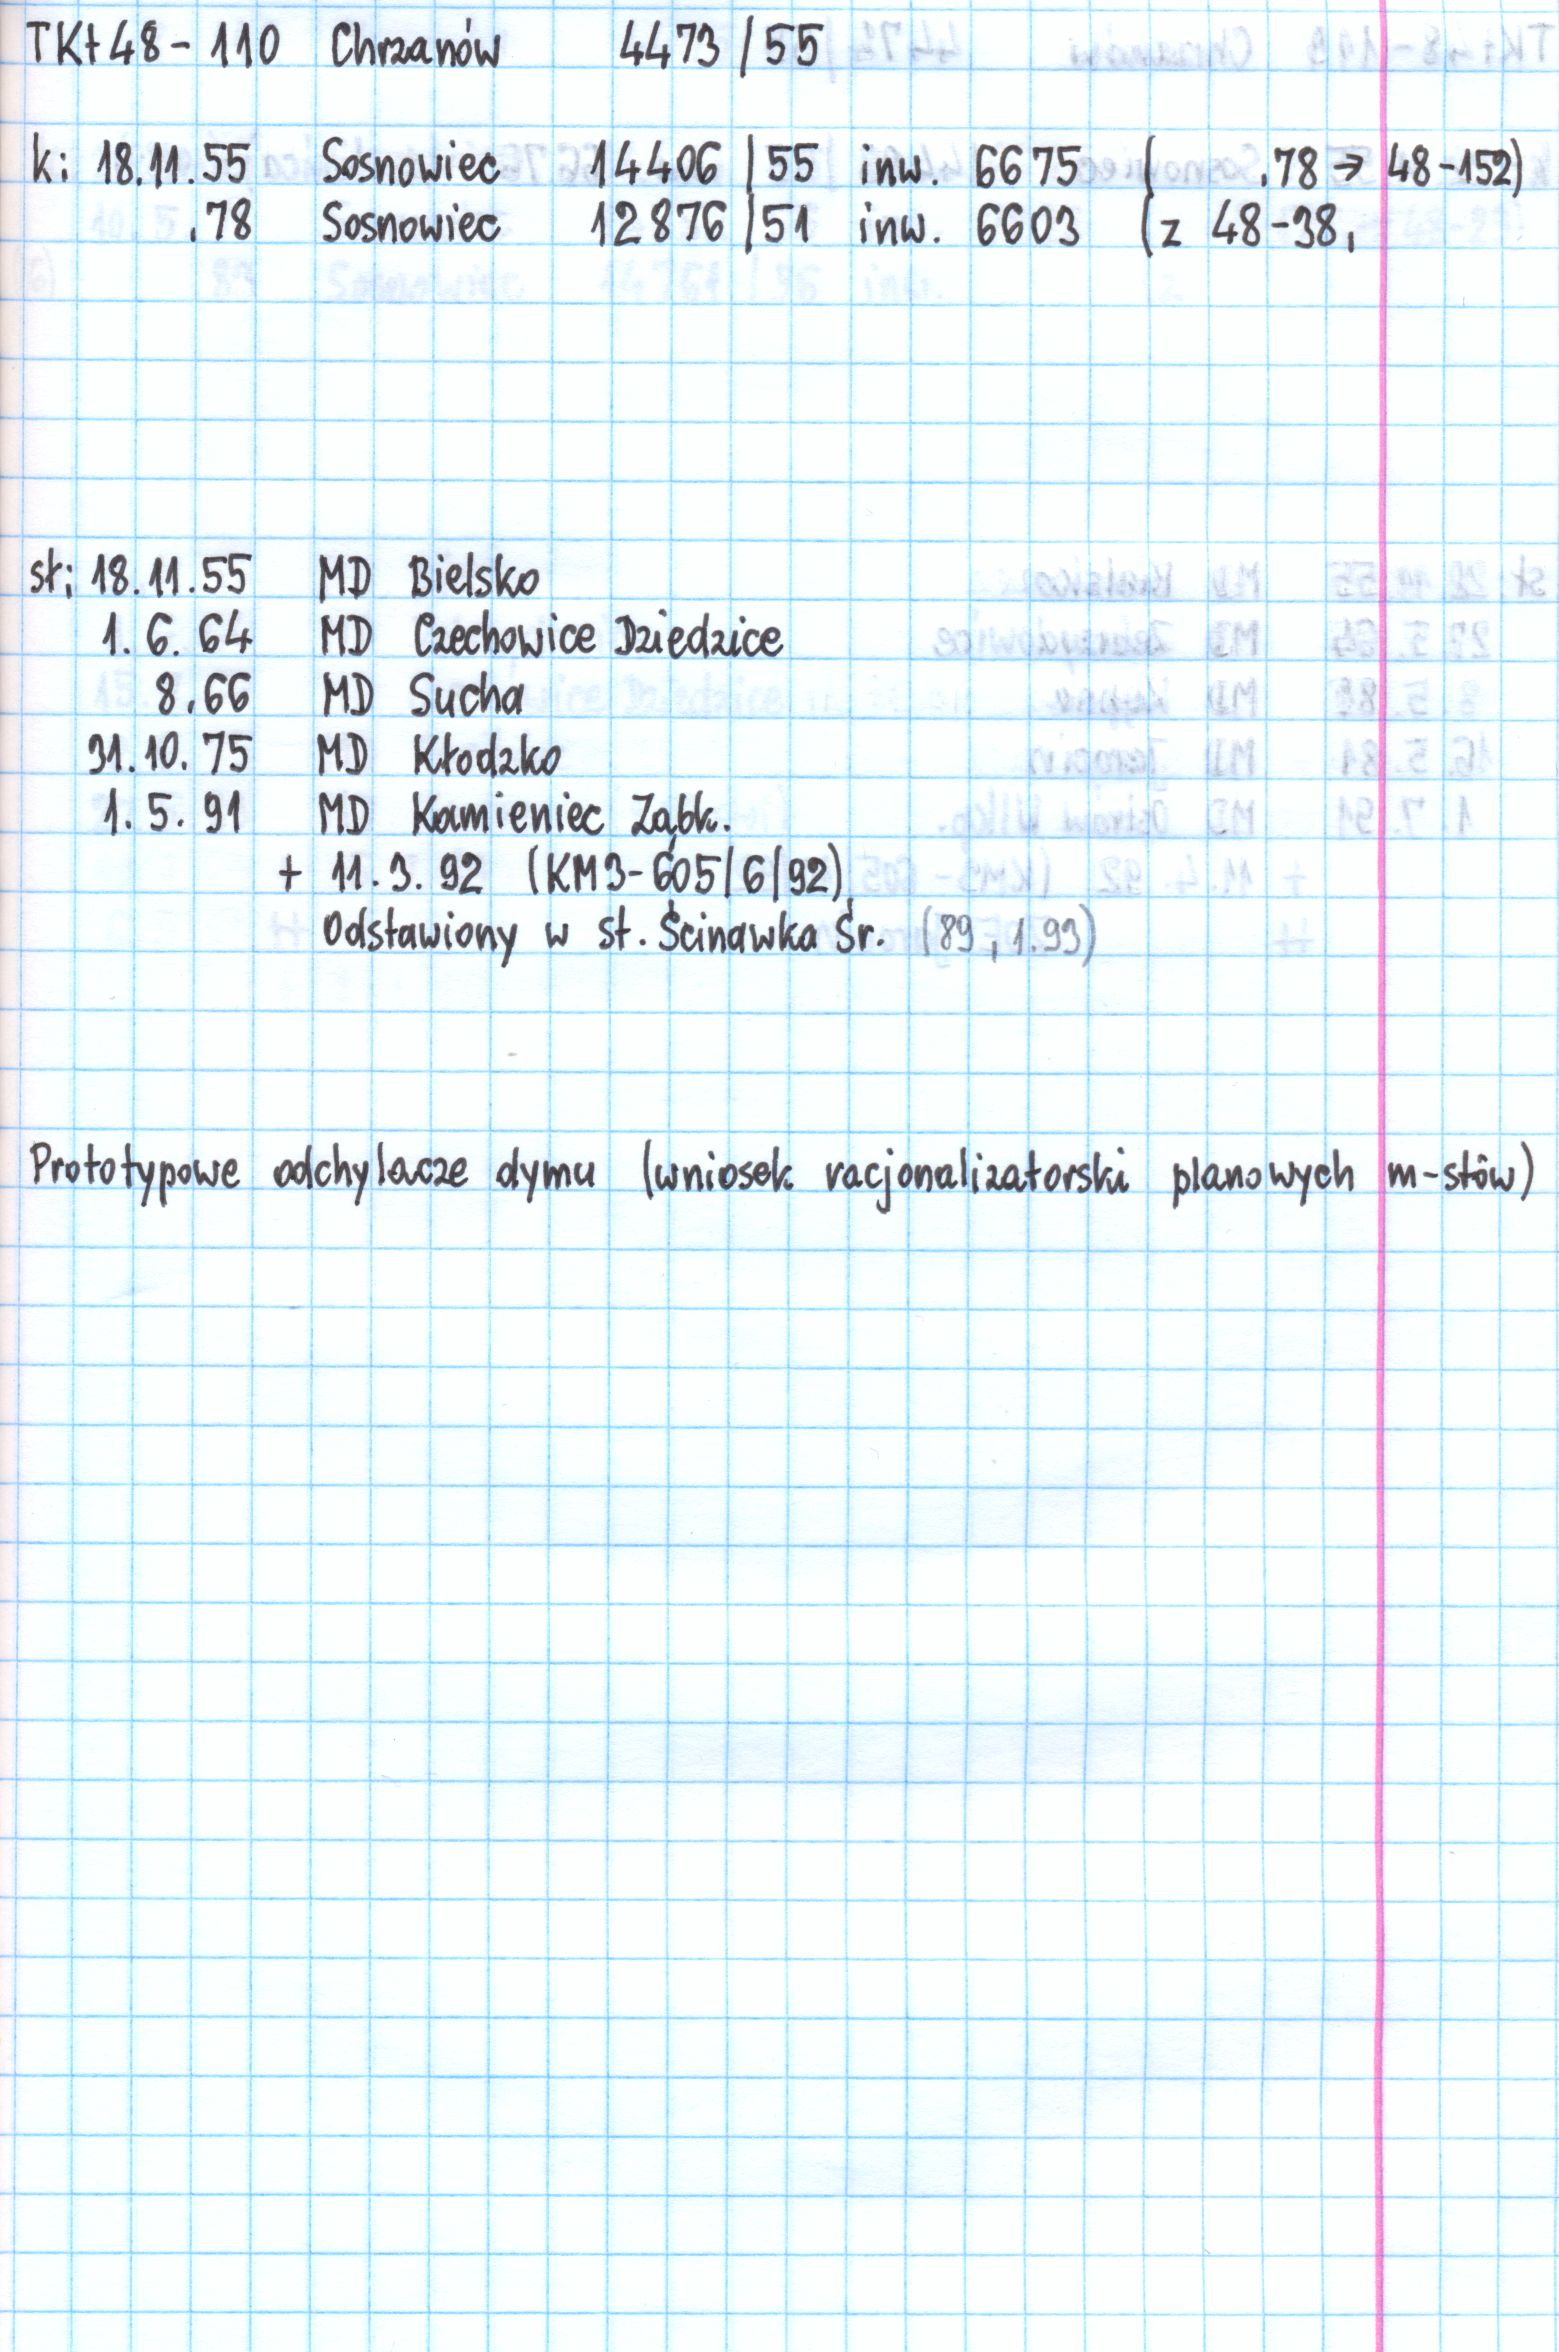 TKt48-110 Chrzanów 4473/55
k: 18.11.55 Sosnowiec 14406/55 inw. 6675 ( .78 → 48-152)
.78 Sosnowiec 12876/51 inw. 6603 (z 48-38,
st: 18.11.55 MD Bielsko
1.6.64 MD Czechowice Dziedzice
8.66 MD Sucha
31.10.75 MD Kłodzko
1.5.91 MD Kamieniec Ząbk.
+ 11.3.92 (KM3-605/6/92)
Odstawiony w st. Ścinawka Śr. (89, 1.93)
Prototypowe odchylacze dymu (wniosek racjonalizatorski planowych m-stów)